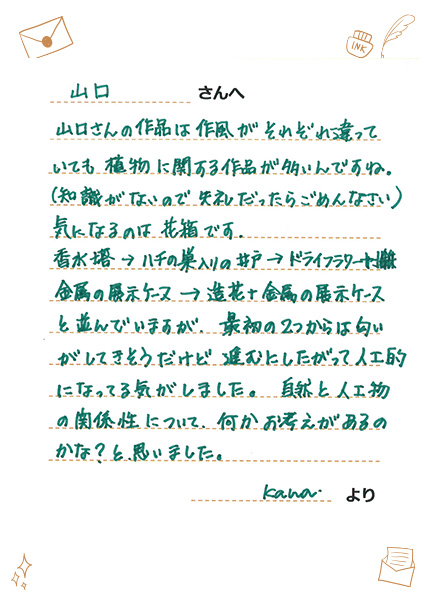 INK
山口 さんへ
山口さんの作品は作風がそれぞれ違って
いても植物に関する作品が多いんですね。
(知識がないので失礼だったらごめんなさい)
気になるのは花箱です.
香水塔→ハチの巣入りの井戸→ドライフラワー+
金属の展示ケース→造花+金属の展示ケース
と並んでいますが、最初の2つからは匂い
がしてきそうだけど進むにしたがって人工的
になってる気がしました。自然と人工物
の関係性について、何かお考えがあるの
かな?と思いました。
kana. より